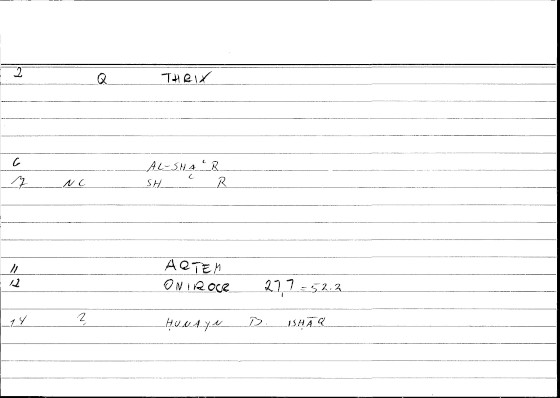 2 Q THRIX
6 AL-SHAʿR
7 NC SH ʿ R
11 ARTEM
12 ONIROCR 27,7 = 52.2
14 ? ḤUNAYN B. ISḤĀQ